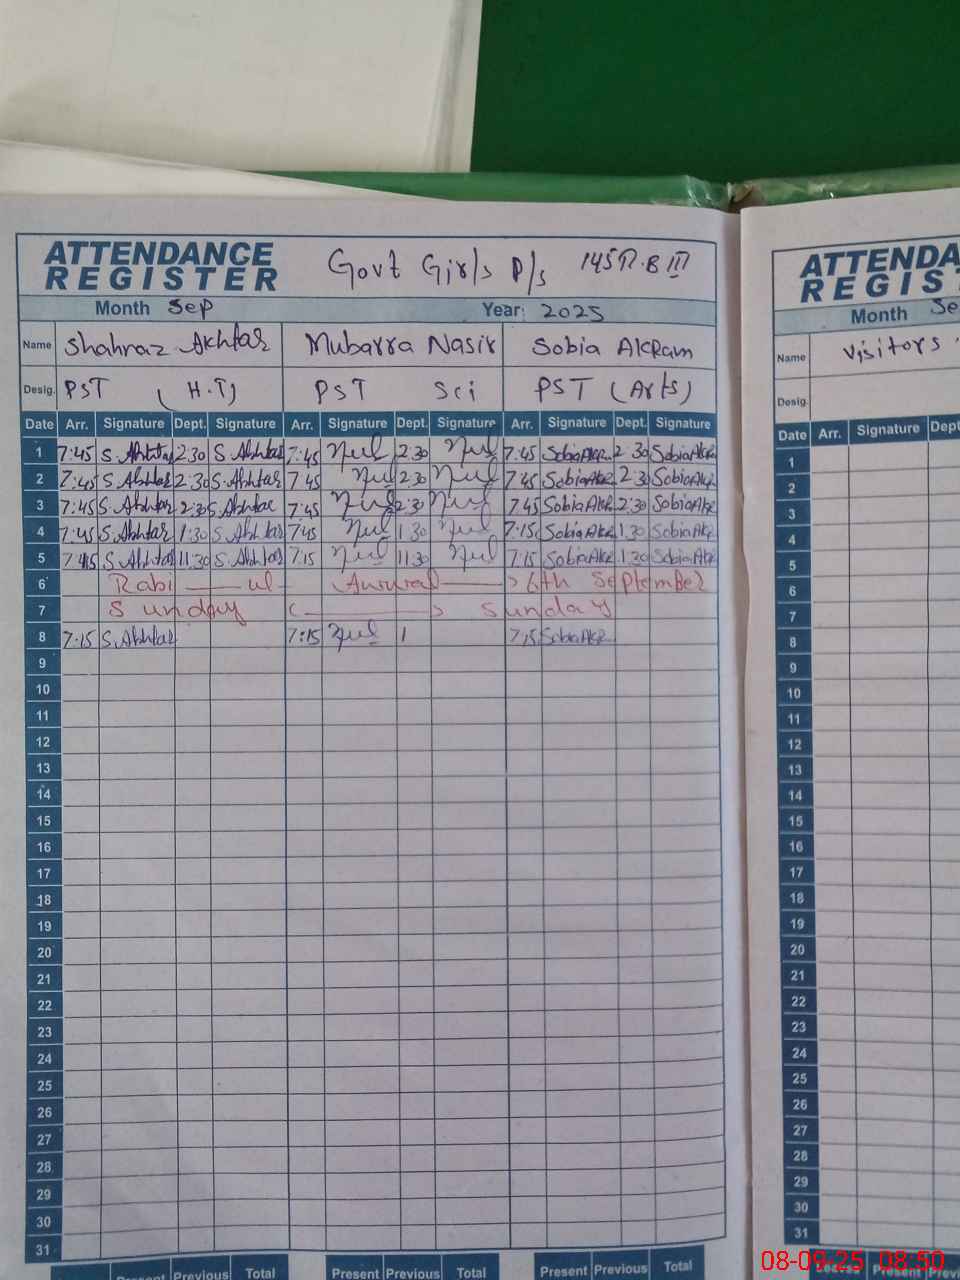 ATTENDANCE REGISTER Govt Girls P/s
Month Sep Year: 2025
Name Shahnaz Akhtar Mubarra Nasir Sobia Akram
Desig. PST (H.T) PST Sci PST (Arts)
Date Arr. Signature Dept. Signature Arr. Signature Dept. Signature Arr. Signature Dept. Signature
1 7:45 S. Akhtar 2:30 S Akhtar 7:45 2:30 7:45 Sobia Akr 2 30 Sobia Akr
2 7:45 S. Akhtar 2:30 S. Akhtar 7 45 2:30 7:45 Sobia Akr 2 30 Sobia Akr
3 7:45 S. Akhtar 2:30 S. Akhtar 7:45 2:30 7 45 Sobia Akr 2:30 Sobia Akr
4 7:45 S. Akhtar 1:30 S. Akhtar 7:45 1 30 7:15 Sobia Akr 1 30 Sobia Akr
5 S. Akhtar 11:30 S. Akhtar 7:15 11:30 7:15 Sobia Akr 1:30 Sobia Akr
6 Rabi ul 6th September
7 Sunday Sunday
8 7:15 S. Akhtar 7:15 1 7:15 Sobia Akr
9
10
11
12
13
14
15
16
17
18
19
20
21
22
23
24
25
26
27
28
29
30
31
Present Previous Total Present Previous Total Present Previous Total
ATTENDA
REGIS
Month Se
Name Visitors
Desig.
Date Arr. Signature Dept
1
2
3
4
5
6
7
8
9
10
11
12
13
14
15
16
17
18
19
20
21
22
23
24
25
26
27
28
29
30
31
Present Previous
08-09-25 08:50